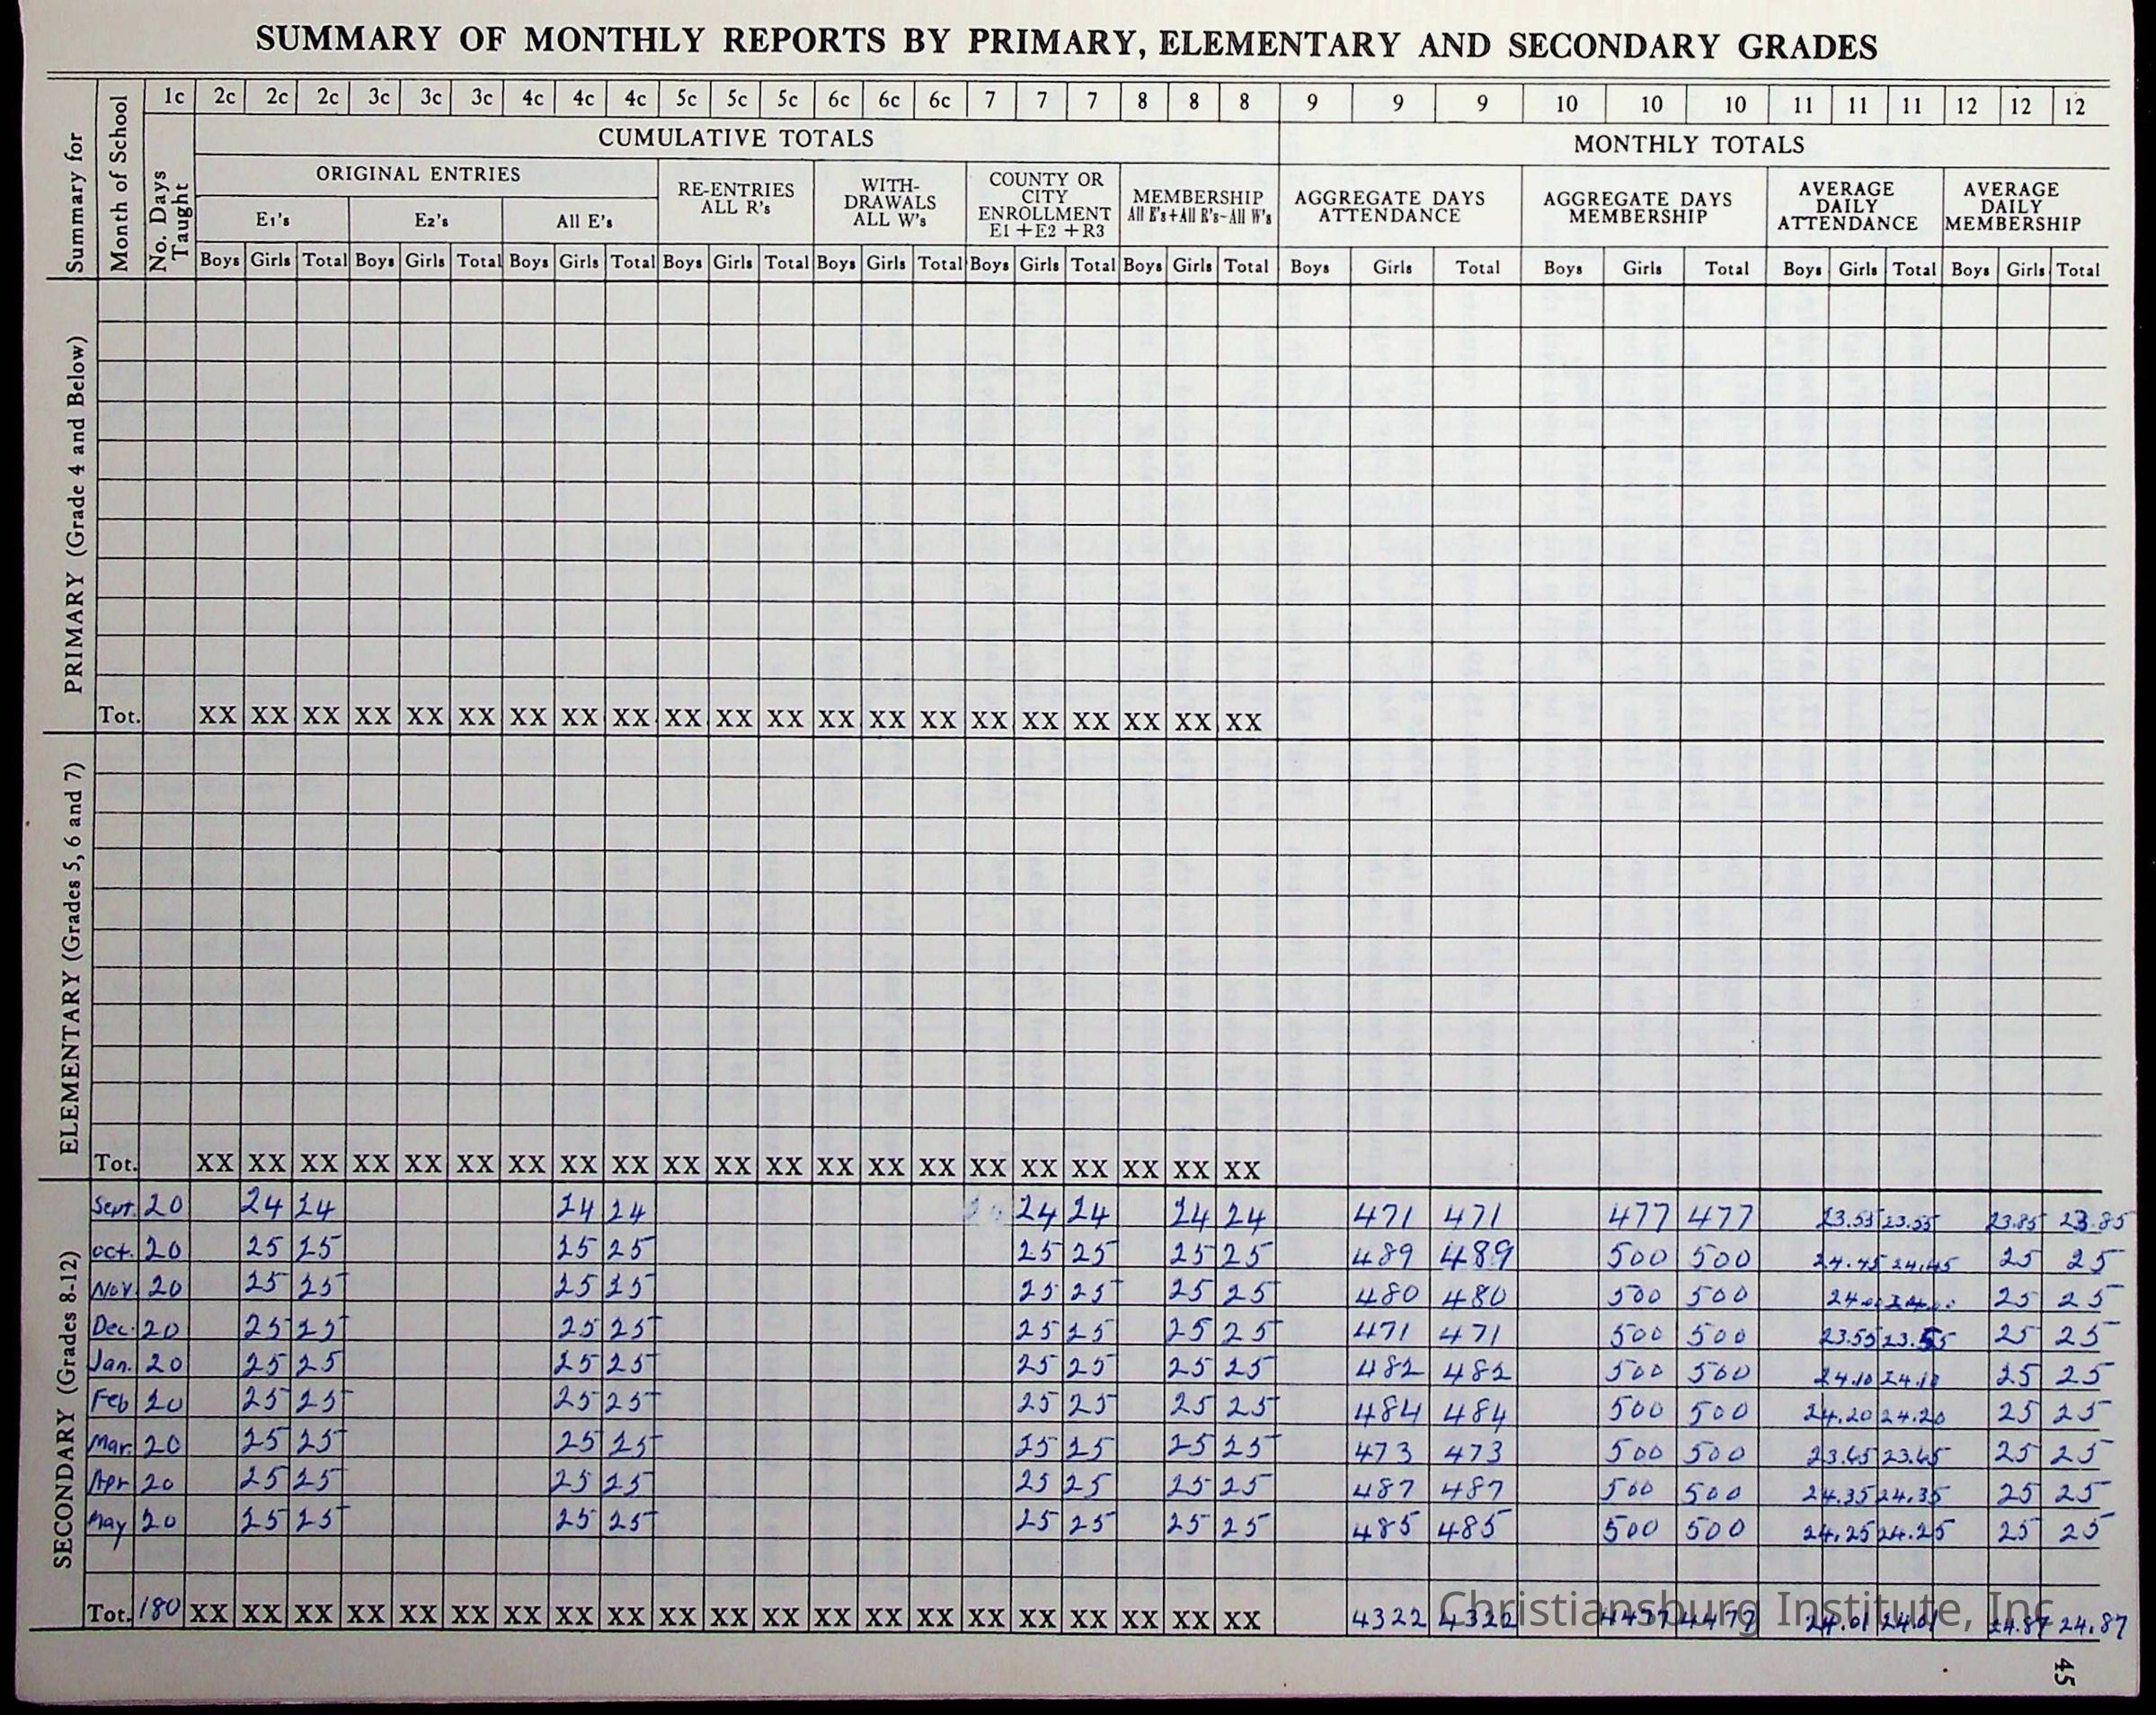 SUMMARY OF MONTHLY REPORTS BY PRIMARY, ELEMENTARY AND SECONDARY GRADES
Summary for
Month of School
No. Days Taught
1c 2c 2c 2c 3c 3c 3c 4c 4c 4c 5c 5c 5c 6c 6c 6c 7 7 7 8 8 8 9 9 9 10 10 10 11 11 11 12 12 12
CUMULATIVE TOTALS MONTHLY TOTALS
ORIGINAL ENTRIES
E1's E2's All E's
RE-ENTRIES
ALL R's
WITH-
DRAWALS
ALL W's
COUNTY OR
CITY
ENROLLMENT
E1+E2+R3
MEMBERSHIP
All E's+All R's-All W's
AGGREGATE DAYS
ATTENDANCE
AGGREGATE DAYS
MEMBERSHIP
AVERAGE
DAILY
ATTENDANCE
AVERAGE
DAILY
MEMBERSHIP
Boys Girls Total Boys Girls Total Boys Girls Total Boys Girls Total Boys Girls Total Boys Girls Total Boys Girls Total Boys Girls Total Boys Girls Total Boys Girls Total Boys Girls Total
PRIMARY (Grade 4 and Below)
Tot. XX XX XX XX XX XX XX XX XX XX XX XX XX XX XX XX XX XX XX XX XX
ELEMENTARY (Grades 5, 6 and 7)
Tot. XX XX XX XX XX XX XX XX XX XX XX XX XX XX XX XX XX XX XX XX XX
SECONDARY (Grades 8-12)
Sept. 20 24 24 24 24 24 24 24 24 471 471 477 477 23.55 23.55 23.85 23.85
Oct. 20 25 25 25 25 25 25 25 25 489 489 500 500 24.45 24.45 25 25
Nov. 20 25 25 25 25 25 25 25 25 480 480 500 500 25 25
Dec. 20 25 25 25 25 25 25 25 25 471 471 500 500 23.55 23.55 25 25
Jan. 20 25 25 25 25 25 25 25 25 482 482 500 500 24.10 24.10 25 25
Feb 20 25 25 25 25 25 25 25 25 484 484 500 500 24.20 24.20 25 25
Mar. 20 25 25 25 25 25 25 25 25 473 473 500 500 23.65 23.65 25 25
Apr 20 25 25 25 25 25 25 25 25 487 487 500 500 24.35 24.35 25 25
May 20 25 25 25 25 25 25 25 25 485 485 500 500 24.25 24.25 25 25
Tot. 180 XX XX XX XX XX XX XX XX XX XX XX XX XX XX XX XX XX XX XX XX XX 4322 4322 4477 4477 24.01 24.01 24.87 24.87
Christiansburg Institute, Inc
45